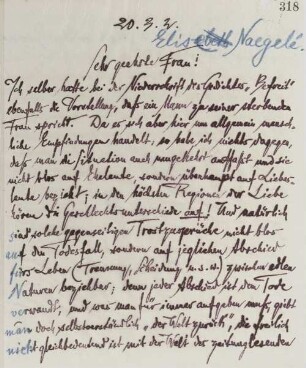 318
20. 3. 2.
Elisabeth Naegelé.
Sehr geehrte Frau!
Ich selber hatte bei der Niederschrift des Gedichtes „Befreit“
ebenfalls die Vorstellung, daß ein Mann zu seiner sterbenden
Frau spricht. Da es sich aber hier um allgemein mensch-
liche Empfindungen handelt, so habe ich nichts dagegen,
daß man die Situation auch umgekehrt auffaßt und sie
nicht blos auf Eheleute, sondern überhaupt auf Liebes-
leute bezieht; in den höchsten Regionen der Liebe
hören die Geschlechtsunterschiede auf! Und natürlich
sind solche gegenseitigen Trostzusprüche nicht blos
auf den Todesfall, sondern auf jeglichen Abschied
fürs Leben (Trennung, Scheidung u. s. w.) zwischen edlen
Naturen beziehbar; denn jeder Abschied ist dem Tode
verwandt, und was man für immer aufgeben muß, giebt
man doch selbstverständlich „der Welt zurück“, die freilich
nicht gleichbedeutend ist mit der Welt der zeitunglesenden